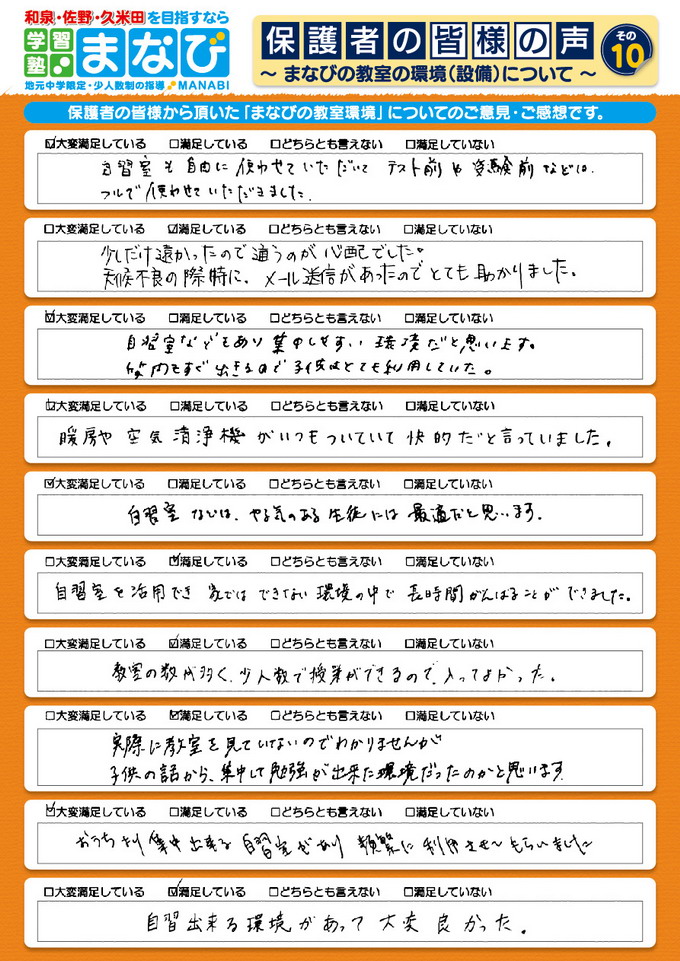 和泉・佐野・久米田を目指すなら
学習塾 まなび
地元中学限定・少人数制の指導 MANABI
保護者の皆様の声 その10
～ まなびの教室の環境（設備）について ～
保護者の皆様から頂いた「まなびの教室環境」についてのご意見・ご感想です。
☑大変満足している □満足している □どちらとも言えない □満足していない
自習室も自由に使わせていただいて テスト前や受験前などは、
フルで使わせていただきました。
□大変満足している ☑満足している □どちらとも言えない □満足していない
少しだけ遠かったので通うのが心配でした。
天候不良の際時に、メール送信があったのでとても助かりました。
☑大変満足している □満足している □どちらとも言えない □満足していない
自習室などもあり集中しやすい環境だと思います。
質問もすぐ出きるので子供はとても利用していた。
☑大変満足している □満足している □どちらとも言えない □満足していない
暖房や空気清浄機がいつもついていて快的だと言っていました。
☑大変満足している □満足している □どちらとも言えない □満足していない
自習室などは、やる気のある生徒には最適だと思います。
□大変満足している ☑満足している □どちらとも言えない □満足していない
自習室を活用でき 家ではできない環境の中で長時間がんばることができました。
□大変満足している ☑満足している □どちらとも言えない □満足していない
教室の数が多く、少人数で授業ができるので、入ってよかった。
□大変満足している ☑満足している □どちらとも言えない □満足していない
実際に教室を見ていないのでわかりませんが
子供の話から、集中して勉強が出来た環境だったのかと思います
☑大変満足している □満足している □どちらとも言えない □満足していない
おうちより集中出来る自習室があり 頻繁に利用させてもらいました
□大変満足している ☑満足している □どちらとも言えない □満足していない
自習出来る環境があって大変良かった。